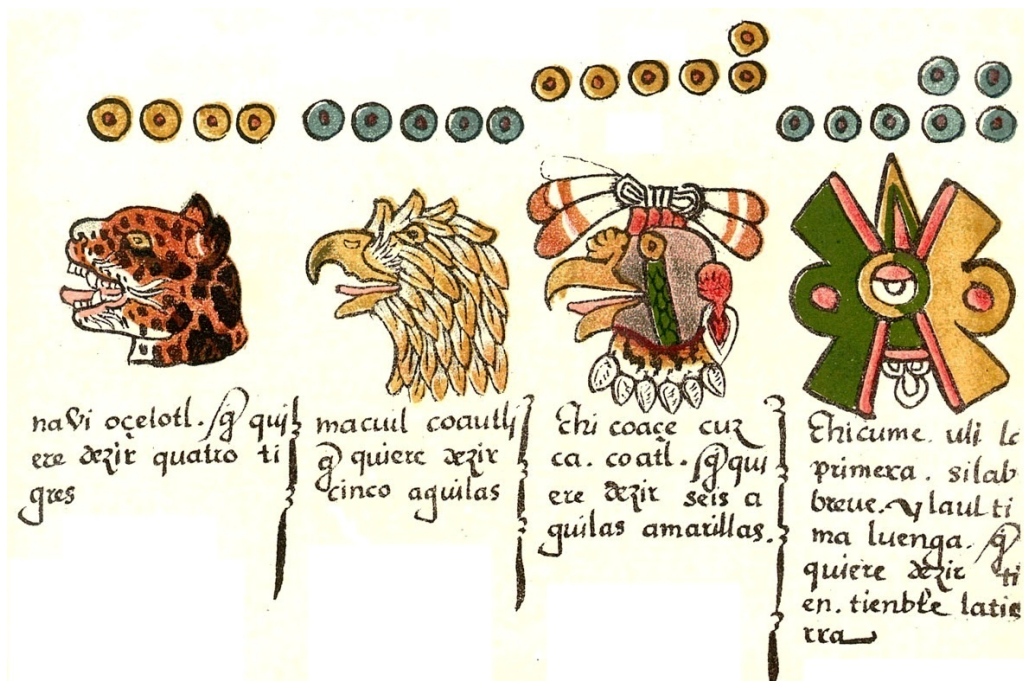 navi oçelotl. q̃ qui
ere dezir quatro ti
gres
macuil coautli
q̃ quiere dezir
cinco aguilas
Chi coaçe cuz
ca. coatl. q̃ qui
ere dezir seis a
guilas amarillas.
Chicume. uli la
primera. silab
breue. y laulti
ma luenga. q̃
quiere dezir ti
en. tienble latie
rra